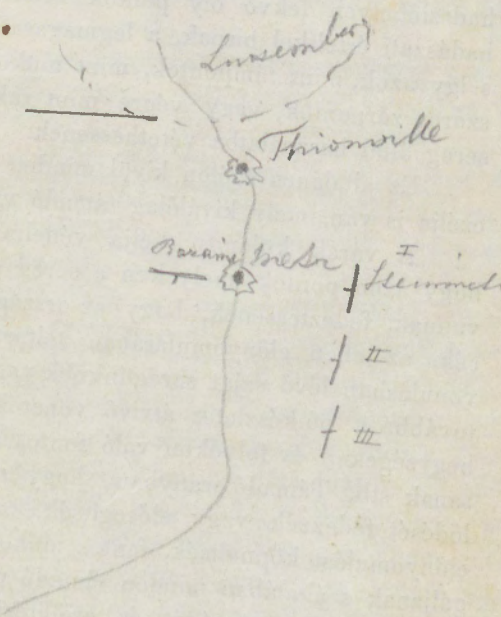 Luxemberg
Thionville
Bazaine Metz
I
Steinmetz
II
III